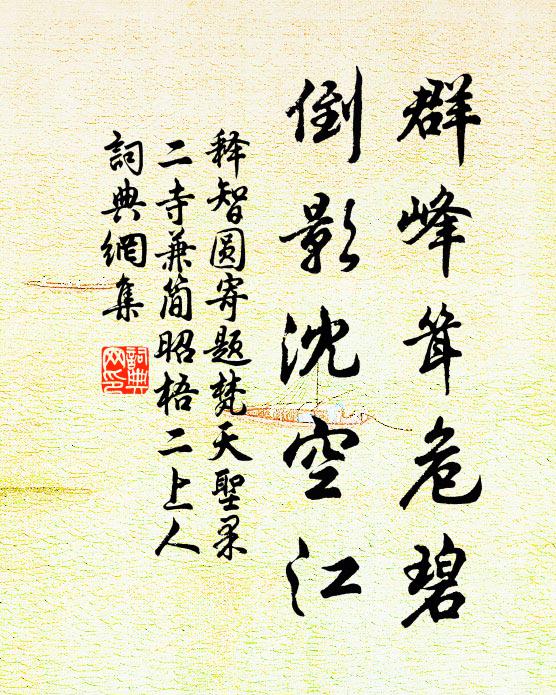 群峰耸危碧
倒影沈空江
释智圆寄题梵天聖果
二寺兼简昭梧二上人
詞典網集
詞典网印